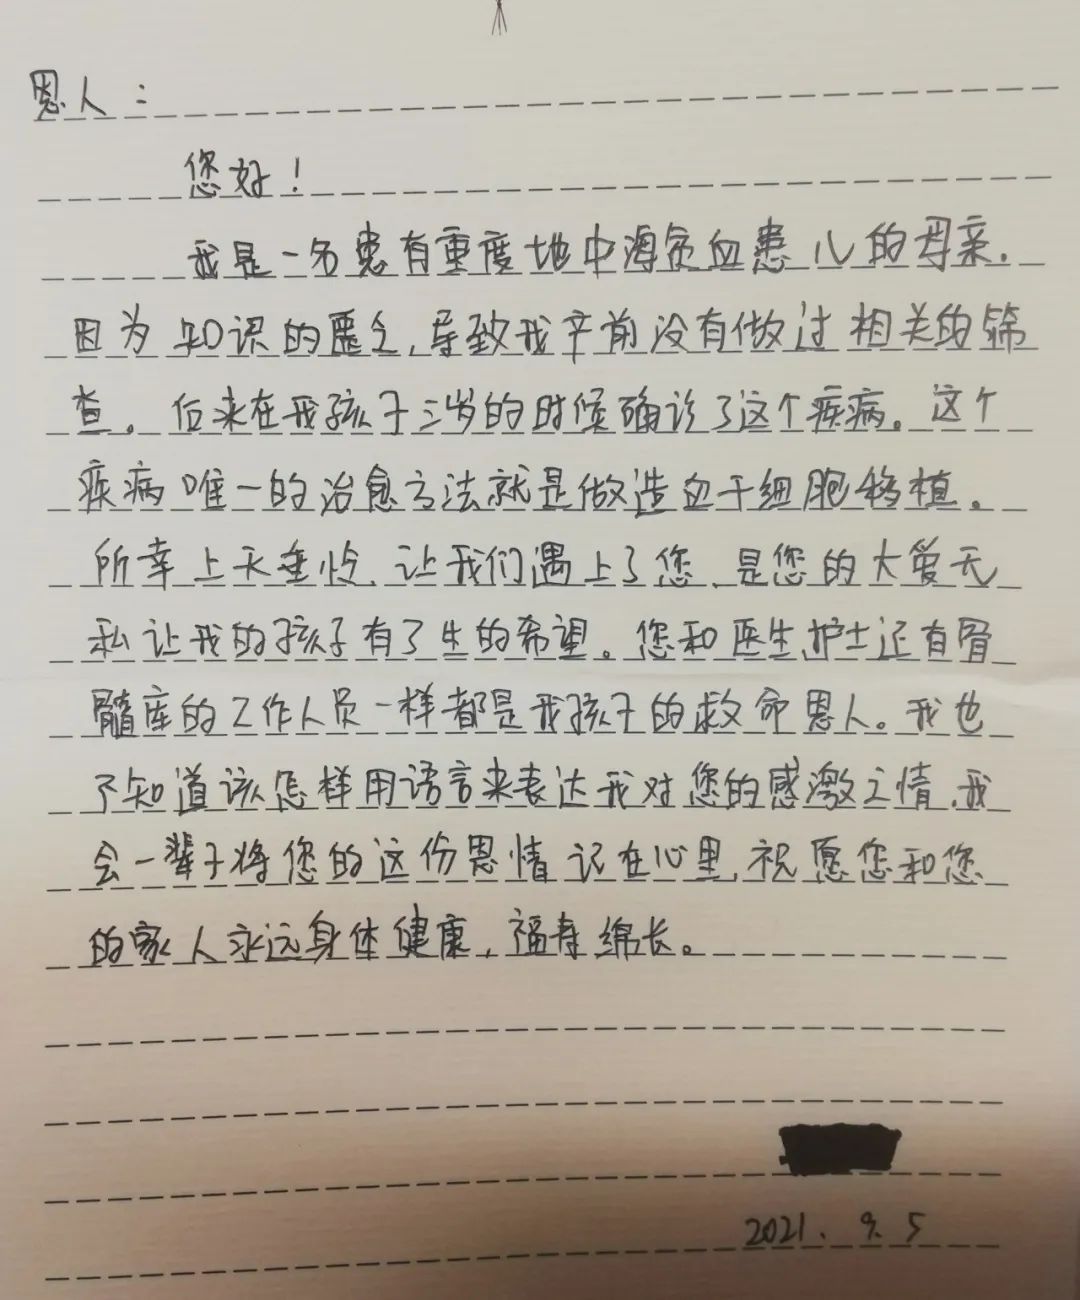 恩人：
您好！
我是一名患有重度地中海贫血患儿的母亲.
因为知识的匮乏,导致我产前没有做过相关的筛
查。后来在我孩子三岁的时候确诊了这个疾病。这个
疾病唯一的治愈方法就是做造血干细胞移植。
所幸上天垂怜,让我们遇上了您,是您的大爱无
私让我的孩子有了生的希望。您和医生护士还有骨
髓库的工作人员一样都是我孩子的救命恩人。我也
不知道该怎样用语言来表达我对您的感激之情,我
会一辈子将您的这份恩情记在心里,祝愿您和您
的家人永远身体健康,福寿绵长。
2021.9.5